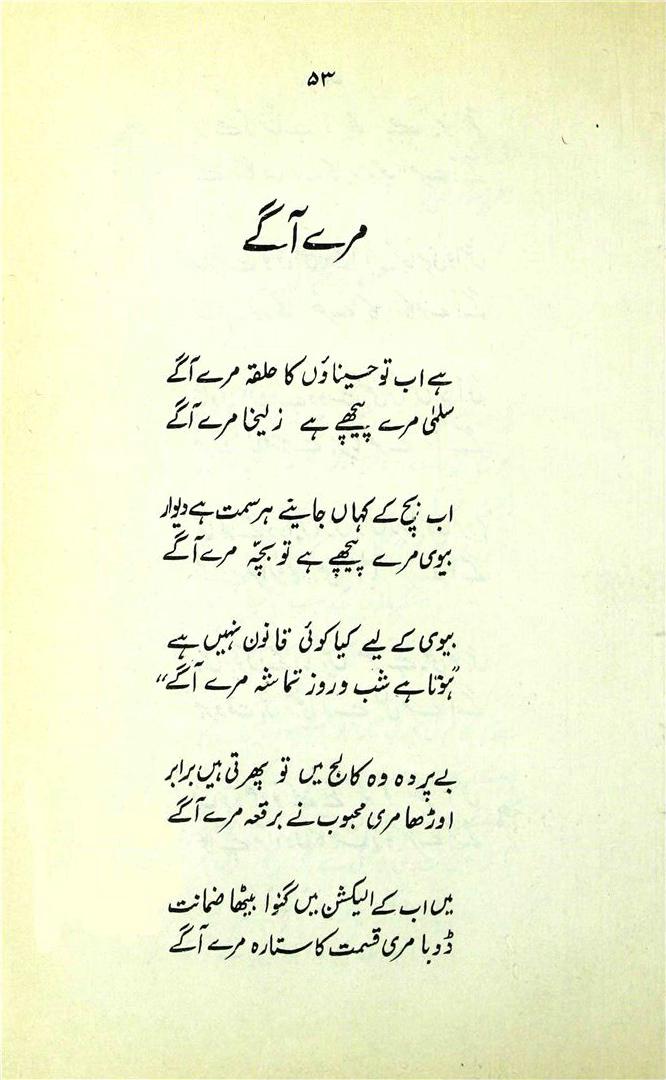 ۵۳
مرے آگے
ہے اب تو حسیناؤں کا حلقہ مرے آگے
سلمٰی مرے پیچھے ہے زلیخا مرے آگے
اب بچ کے کہاں جائیے ہر سمت ہے دیوار
بیوی مرے پیچھے ہے تو بچّہ مرے آگے
بیوی کے لیے کیا کوئی قانون نہیں ہے
"ہوتا ہے شب و روز تماشہ مرے آگے"
بے پردہ وہ کالج میں تو پھرتی ہیں برابر
اوڑھا مری محبوب نے برقعہ مرے آگے
میں اب کے الیکشن میں گنوا بیٹھا ضمانت
ڈوبا مری قسمت کا ستارہ مرے آگے